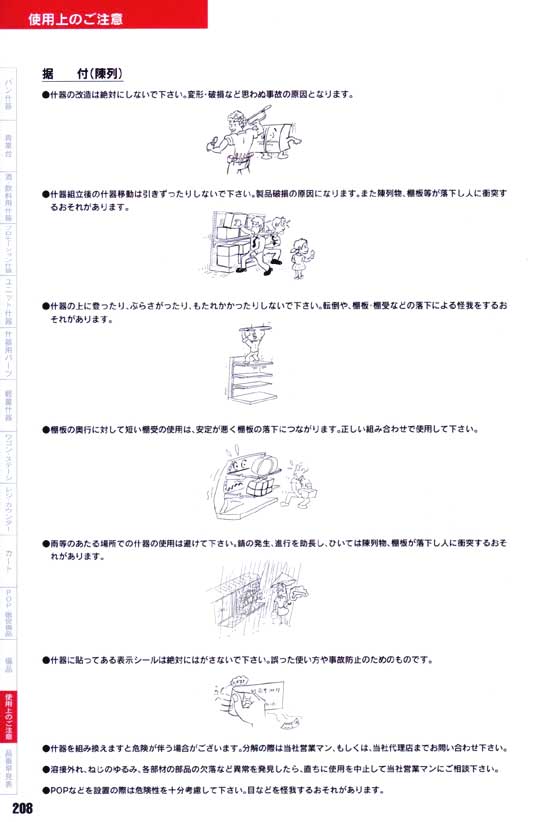 使用上のご注意
据　付(陳列)
●什器の改造は絶対にしないで下さい。変形・破損など思わぬ事故の原因となります。
●什器組立後の什器移動は引きずったりしないで下さい。製品破損の原因になります。また陳列物、棚板等が落下し人に衝突す
るおそれがあります。
●什器の上に登ったり、ぶらさがったり、もたれかかったりしないで下さい。転倒や、棚板・棚受などの落下による怪我をするお
それがあります。
●棚板の奥行に対して短い棚受の使用は、安定が悪く棚板の落下につながります。正しい組み合わせで使用して下さい。
●雨等のあたる場所での什器の使用は避けて下さい。錆の発生、進行を助長し、ひいては陳列物、棚板が落下し人に衝突するおそ
れがあります。
●什器に貼ってある表示シールは絶対にはがさないで下さい。誤った使い方や事故防止のためのものです。
●什器を組み換えますと危険が伴う場合がございます。分解の際は当社営業マン、もしくは、当社代理店までお問い合わせ下さい。
●溶接外れ、ねじのゆるみ、各部材の部品の欠落など異常を発見したら、直ちに使用を中止して当社営業マンにご相談下さい。
●POPなどを設置の際は危険性を十分考慮して下さい。目などを怪我するおそれがあります。
パン什器
青果台
酒・飲料用什器
プロモーション什器
ユニット什器
什器用パーツ
軽量什器
ワゴン・ステージ
レジカウンター
カート
POP・販促備品
備品
使用上のご注意
品番早見表
208